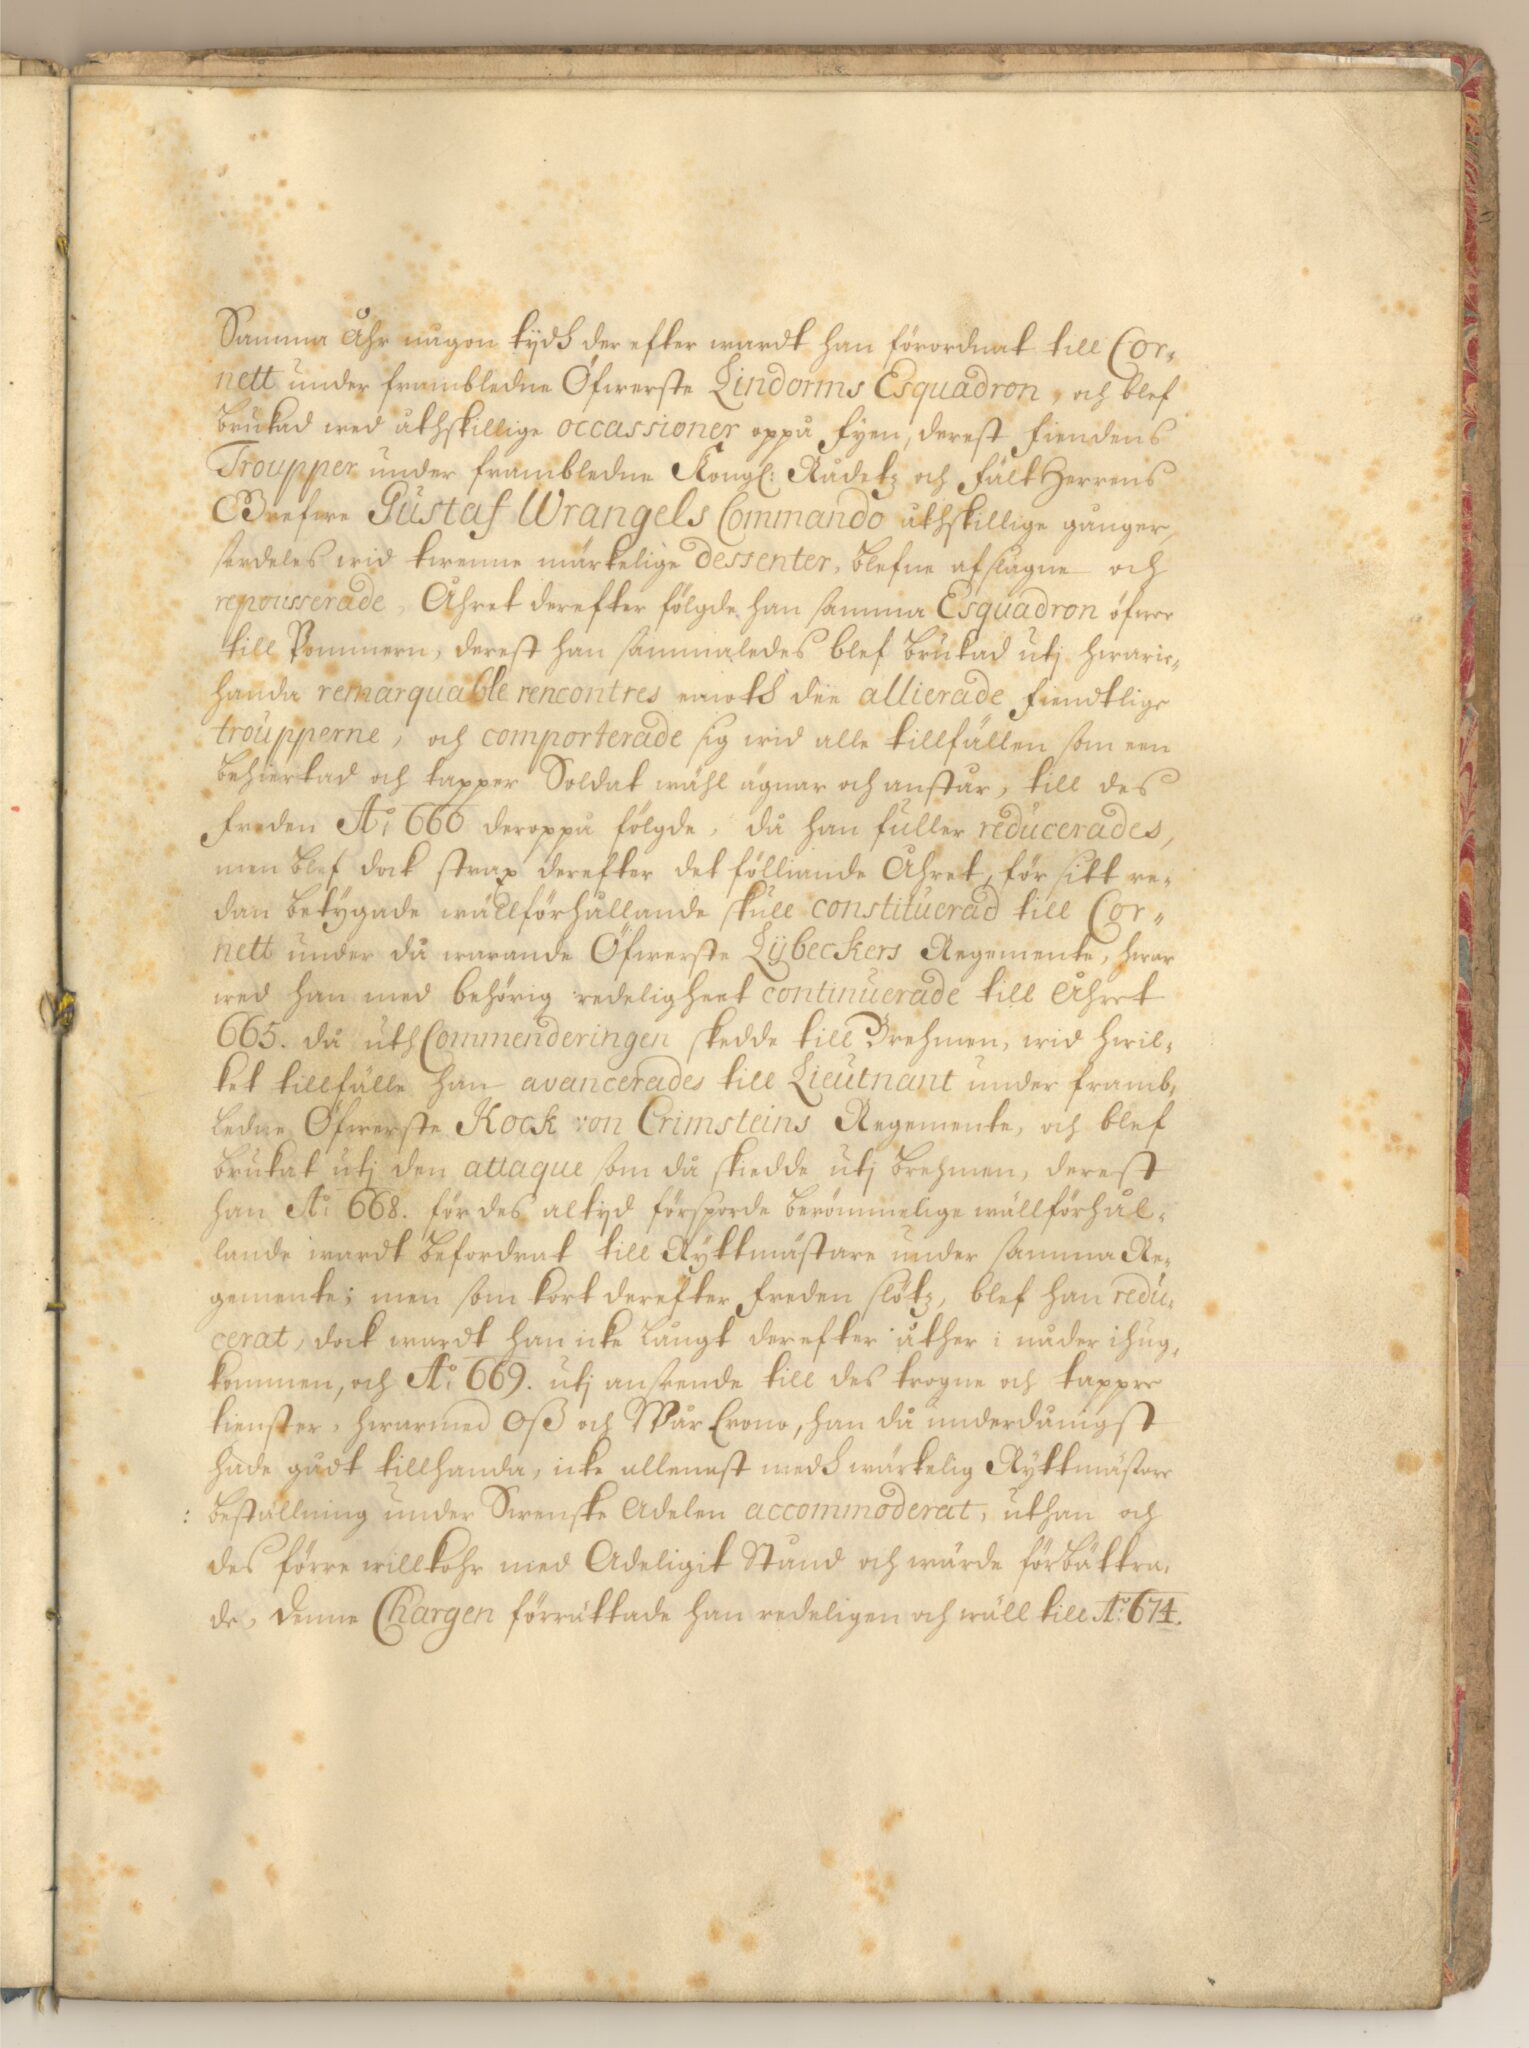 Samma Åhr någon tydh der efter wardt han förordnat till Cor-
nett under frambledne Öfwerste Lindorms Esquadron, och blef
brukad wed åthskillige occassioner oppå Fyen, derest Fiendens
Troupper under frambledne Kongl: Rådetz och FältHerrens
Grefwe Gustaf Wrangels Commando åthskillige gånger,
serdeles wid twenne märkelige dessenter, blefne afslagne och
repousserade, Åhret derefter fölgde han samma Esquadron öfwer
till Pommern, derest han sammaledes blef brukad utj hwarie-
handa remarquable rencontres emoth die allierade Fiendtlige
troupperne, och comporterade sig wid alle tillfällen som een
behiertad och tapper Soldat wähl ägnar och anstår, till des
Freden A:o 660 deroppå fölgde, då han fuller reducerades,
men blef dock strax derefter det fölliande Åhret, för sitt re-
dan betygade wällförhållande skull constituerad till Cor-
nett under då warande Öfwerste Lybeckers Regemente, hwar
wed han med behörig redeligheet continuerade till Åhret
665. då uth Commenderingen skedde till Brehmen, wid hwil-
ket tillfälle han avancerades till Lieutnant under framb-
ledne Öfwerste Kock von Crimsteins Regemente, och blef
brukat utj den attaque som då skiedde utj Brehmen, derest
han A:o 668. för des altyd försporde berömmelige wällförhål-
lande wardt befordrat till Ryttmästare under samma Re-
gemente; men som kort derefter Freden slötz, blef han redu-
cerat, dock wardt han icke långt derefter åther i nåder ihug-
kommen, och A:o 669. utj anseende till des trogne och tappre
tienster, hwarmed Oß och Wår Crono, han då underdånigst
hade gådt tillhanda, icke allenast medh würkelig Ryttmästare
: beställning under Swenske Adelen accommoderat, uthan och
des förre willkohr med Adeligit Stånd och wärde förbättra-
de, Denne Chargen förrättade han redeligen och wäll till A:o 674.